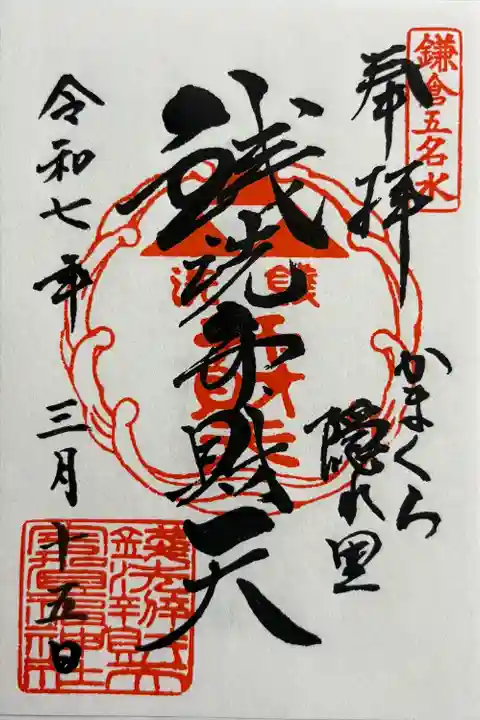 鎌倉五名水
奉拝
かまくら
隠れ里
銭洗弁財天
令和七年三月十五日